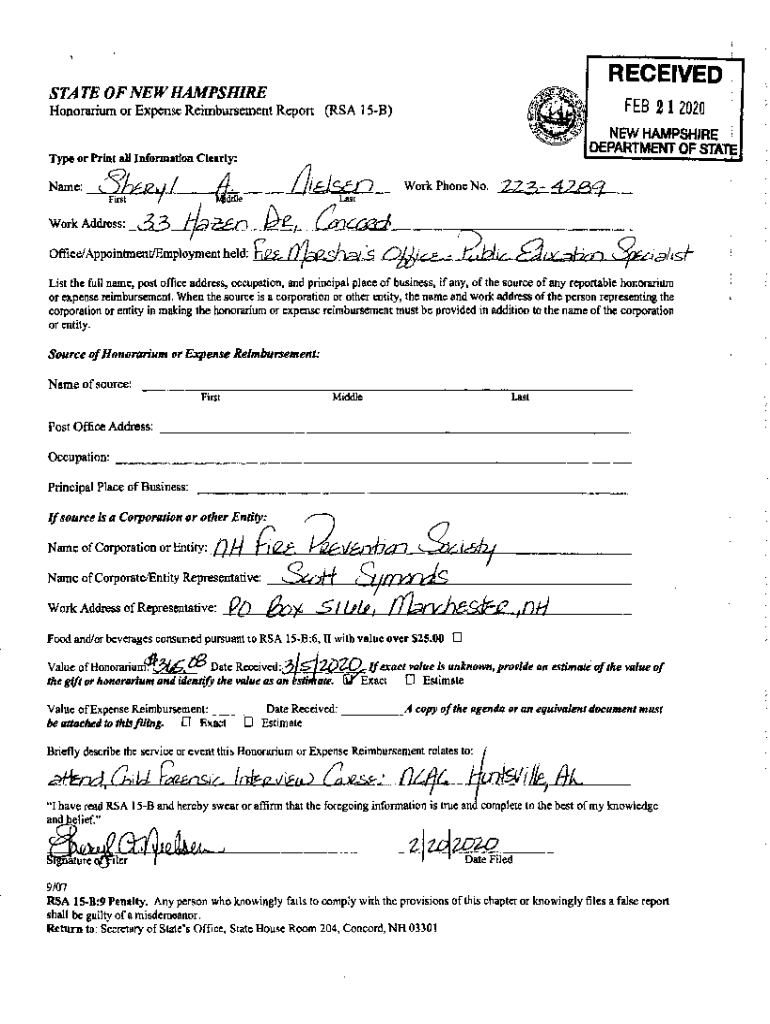 RECEIVED
FEB 21 2020
NEW HAMPSHIRE
DEPARTMENT OF STATE
STATE OF NEW HAMPSHIRE
Honorarium or Expense Reimbursement Report (RSA 15-B)
Type or Print all Information Clearly:
Name: Sheryl A. Nielsen Work Phone No. 223-4289
First Middle Last
Work Address: 33 Hazen Dr, Concord
Office/Appointment/Employment held: Fire Marshal's Office - Public Education Specialist
List the full name, post office address, occupation, and principal place of business, if any, of the source of any reportable honorarium
or expense reimbursement. When the source is a corporation or other entity, the name and work address of the person representing the
corporation or entity in making the honorarium or expense reimbursement must be provided in addition to the name of the corporation
or entity.
Source of Honorarium or Expense Reimbursement:
Name of source:
First Middle Last
Post Office Address:
Occupation:
Principal Place of Business:
If source is a Corporation or other Entity:
Name of Corporation or Entity: NH Fire Prevention Society
Name of Corporate/Entity Representative: Scott Symonds
Work Address of Representative: PO Box Manchester, NH
Food and/or beverages consumed pursuant to RSA 15-B:6, II with value over $25.00 ☐
Value of Honorarium: Date Received: 3/5/2020 If exact value is unknown, provide an estimate of the value of
the gift or honorarium and identify the value as an estimate. ☑ Exact ☐ Estimate
Value of Expense Reimbursement: Date Received: A copy of the agenda or an equivalent document must
be attached to this filing. ☐ Exact ☐ Estimate
Briefly describe the service or event this Honorarium or Expense Reimbursement relates to:
attend Child Forensic Interview Corse: NCAC Huntsville,
"I have read RSA 15-B and hereby swear or affirm that the foregoing information is true and complete to the best of my knowledge
and belief."
Sheryl A. Nielsen 2/20/2020
Signature of Filer Date Filed
9/07
RSA 15-B:9 Penalty. Any person who knowingly fails to comply with the provisions of this chapter or knowingly files a false report
shall be guilty of a misdemeanor.
Return to: Secretary of State's Office, State House Room 204, Concord, NH 03301